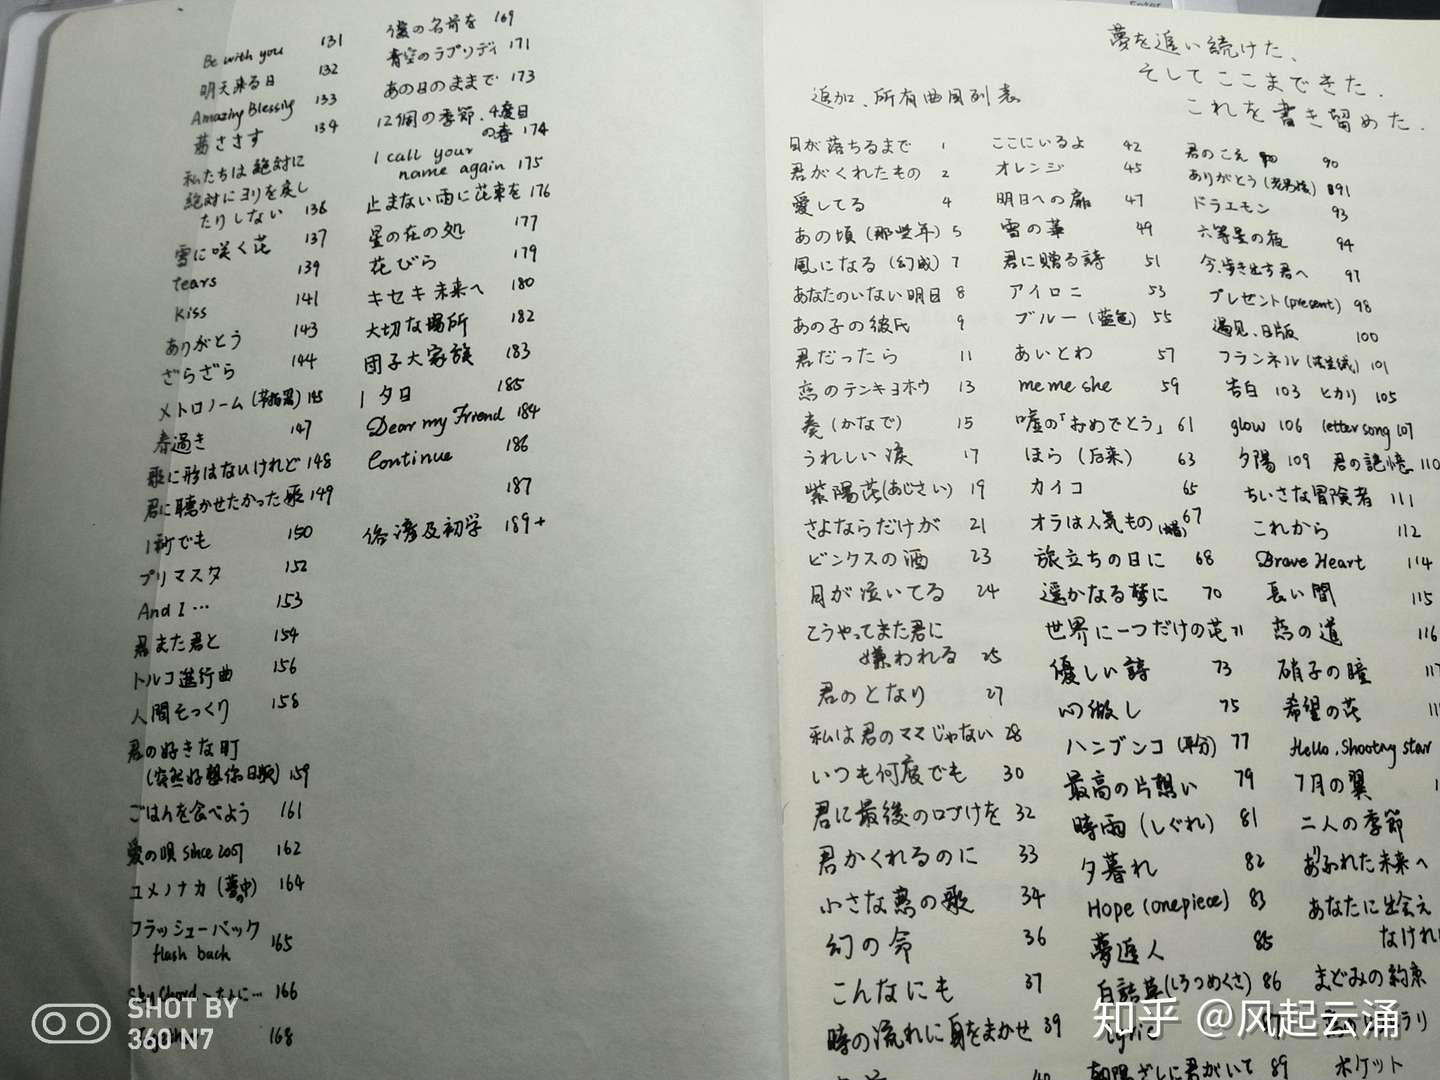 Be with you 131
明天来る日 132
Amazing Blessing 133
葛ささす 134
私たちは絶対に
絶対にヨリを戻し
たりしない 136
雪に咲く花 137
tears 139
kiss 141
ありがとう 143
ざらざら 144
メトロノーム 145
春過ぎ 147
歌に形はないけれど 148
君に聴かせたかった歌 149
1秒でも 150
プリマスタ 152
And I… 153
君また君と 154
トルコ進行曲 156
人間そっくり 158
君の好きな町
(突然好想你日版) 159
ごはんを食べよう 161
愛の唄 since 2007 162
ユメノナカ (夢の中) 164
フラッシューバック
flash back 165
166
168
僕の名前を 169
青空のラプソディ 171
あの日のままで 173
12個の季節、4度目
の春 174
I call your
name again 175
止まない雨に花束を 176
星の在の処 177
花びら 179
キセキ 未来へ 180
大切な場所 182
団子大家族 183
1 夕日 185
Dear my Friend 184
Continue 186
187
及初学 189+
夢を追い続けた、
そしてここまできた.
これを書き留めた.
追加、所有曲目列表
目が落ちるまで 1
君がくれたもの 2
愛してる 4
あの頃 (那些年) 5
風になる (幻城) 7
あなたのいない明日 8
あの子の彼氏 9
君だったら 11
恋のテンキョホウ 13
奏 (かなで) 15
うれしい涙 17
紫陽花(あじさい) 19
さよならだけが 21
ビンクスの酒 23
月が泣いてる 24
こうやってまた君に
嫌われる 25
君のとなり 27
私は君のママじゃない 28
いつも何度でも 30
君に最後の口づけを 32
君がくれるのに 33
小さな恋の歌 34
幻の命 36
こんなにも 37
時の流れに身をまかせ 39
40
ここにいるよ 42
オレンジ 45
明日への扉 47
雪の華 49
君に贈る詩 51
アイロニ 53
ブルー (蓝色) 55
あいとわ 57
me me she 59
嘘の「おめでとう」 61
ほら (后来) 63
カイコ 65
オラは人気もの 67
旅立ちの日に 68
遥かなる夢に 70
世界に一つだけの花 71
優しい詩 73
心做し 75
ハンブンコ (平分) 77
最高の片想い 79
時雨 (しぐれ) 81
夕暮れ 82
Hope (onepiece) 83
夢追人 85
白詰草(しろつめくさ) 86
Lyric 87
朝陽ざしに君がいて 89
君のこえ 90
ありがとう 91
ドラエモン 93
六等星の夜 94
今、歩き出す君へ 97
プレゼント(present) 98
遇见、日版 100
フランネル 101
告白 103 ヒカリ 105
glow 106 letter song 107
夕陽 109 君の記憶 110
ちいさな冒険者 111
これから 112
Brave Heart 114
長い間 115
恋の道 116
硝子の瞳
希望の花
Hello, Shooting star
7月の翼
二人の季節
あふれた未来へ
あなたに出会え
なければ
まどみの約束
ポケット
SHOT BY
360 N7
知乎 @风起云涌